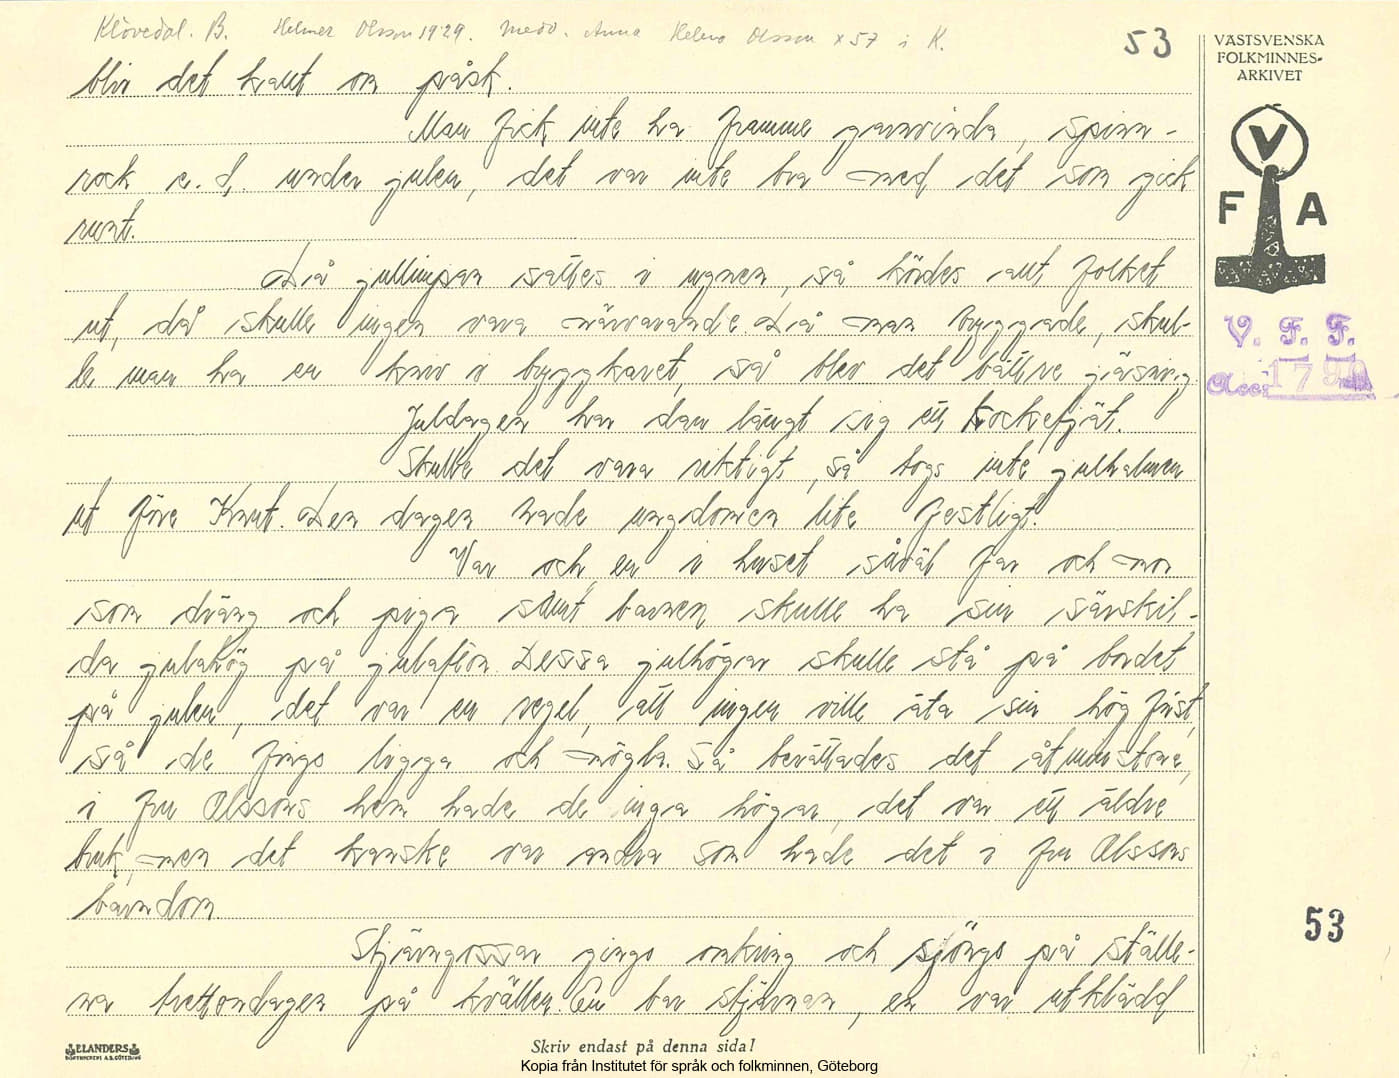 Klövedal. B. Helmer Olsson 1929. Medd. Anna Helena Olsson x 57 i K.
53
VÄSTSVENSKA
FOLKMINNES-
ARKIVET
V
F A
V. F. F.
Acc:
blir det kallt om påsk.
Man fick inte ha framme garnvinda, spinn-
rock e. d. under julen, det var inte bra med det som gick
runt.
Då jullimpan sattes i ugnen, så kördes allt folket
ut, då skulle ingen vara närvarande. Då man bryggade, skul-
le man ha en kniv i bryggkaret, så blev det bättre jäsning.
Juldagen har dan längt sig ett tockefjät.
Skulle det vara riktigt, så togs inte julhalmen
ut före Knut. Den dagen hade ungdomen lite festligt.
Var och en i huset såväl far och mor
som dräng och piga samt barnen skulle ha sin särskil-
da julahög på julafton. Dessa julhögar skulle stå på bordet
på julen, det var en regel, att ingen ville äta sin hög först,
så de fingo ligga och mögla. Så berättades det åtminstone,
i fru Olssons hem hade de inga högar, det var ett äldre
bruk, men det kanske var andra som hade det i fru Olssons
barndom.
Stjärngossar gingo omkring och sjöngo på ställe-
na trettondagen på kvällen. En bar stjärnan, en var utklädd
53
ELANDERS
BOKTRYCKERI A.B. GÖTEBORG
Skriv endast på denna sida!
Kopia från Institutet för språk och folkminnen, Göteborg